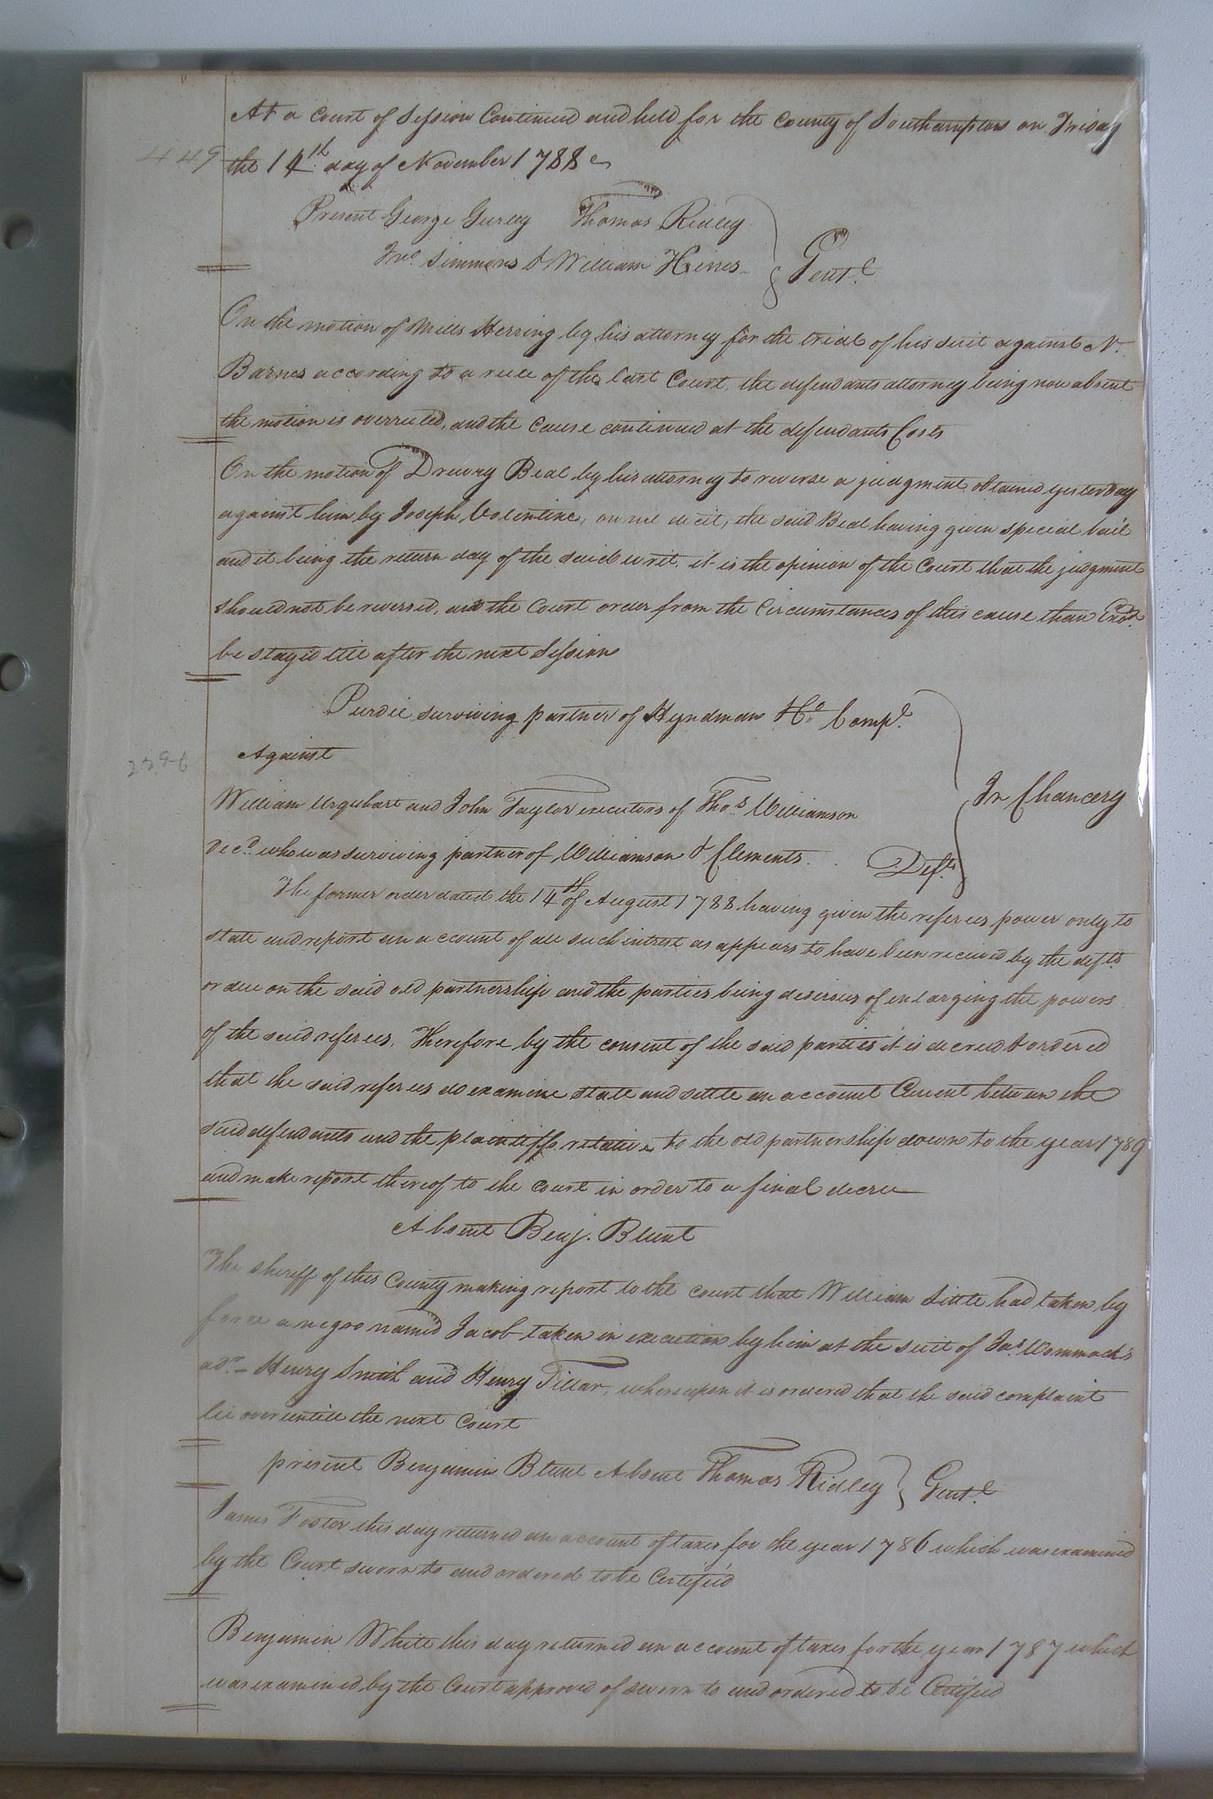 At a Court of Session Continued and held for the County of Southampton on Friday
449 the 14th day of November 1788
Present George Gurley Thomas Ridley
Jno Simmons & William Hines Gent.
On the motion of Mills Herring by his attorney for the trial of his suit against N.
Barnes according to a rule of the last Court, the defendants attorney being now absent
the motion is overruled, and the cause continued at the defendants Costs
On the motion of Drewry Beal by his attorney to reverse a judgment obtained yesterday
against him by Joseph Valentine, the said Beal having given special bail
and it being the return day of the said writ, it is the opinion of the Court that the judgment
should not be reversed, and the Court order from the Circumstances of this cause than Exon
be stayed till after the next Session
Purdie surviving partner of Hyndman Ho Compt.
Against
2596
William Urquhart and John Taylor executors of Thos Williamson
In Chancery
Decd. who was surviving partner of Williamson & Clements. Defts
The former order dated the 14th of August 1788 having given the referees power only to
state and report an account of all such intrest as appears to have been received by the defts
or due on the said old partnership and the parties being desirous of enlarging the powers
of the said referees, Therefore by the consent of the said parties it is decreed & ordered
that the said referees do examine state and settle an account Current between the
said defendants and the plaintiffs relative to the old partnership down to the year 1789
and make report thereof to the Court in order to a final decree
Absent Benj. Blunt
The sheriff of this County making report to the court that William Little had taken by
force a negroe named Jacob taken in execution by him at the suit of Jas Wommack's
ador Henry Smith and Henry Tillar, whereupon it is ordered that the said complaint
lie over untill the next Court
present Benjamin Blunt Absent Thomas Ridley Gent.
James Foster this day returned an account of taxes for the year 1786 which was examined
by the Court sworn to and ordered to be Certified
Benjamin White this day returned an account of taxes for the year 1787 which
was examined by the Court approved of sworn to and ordered to be Certified